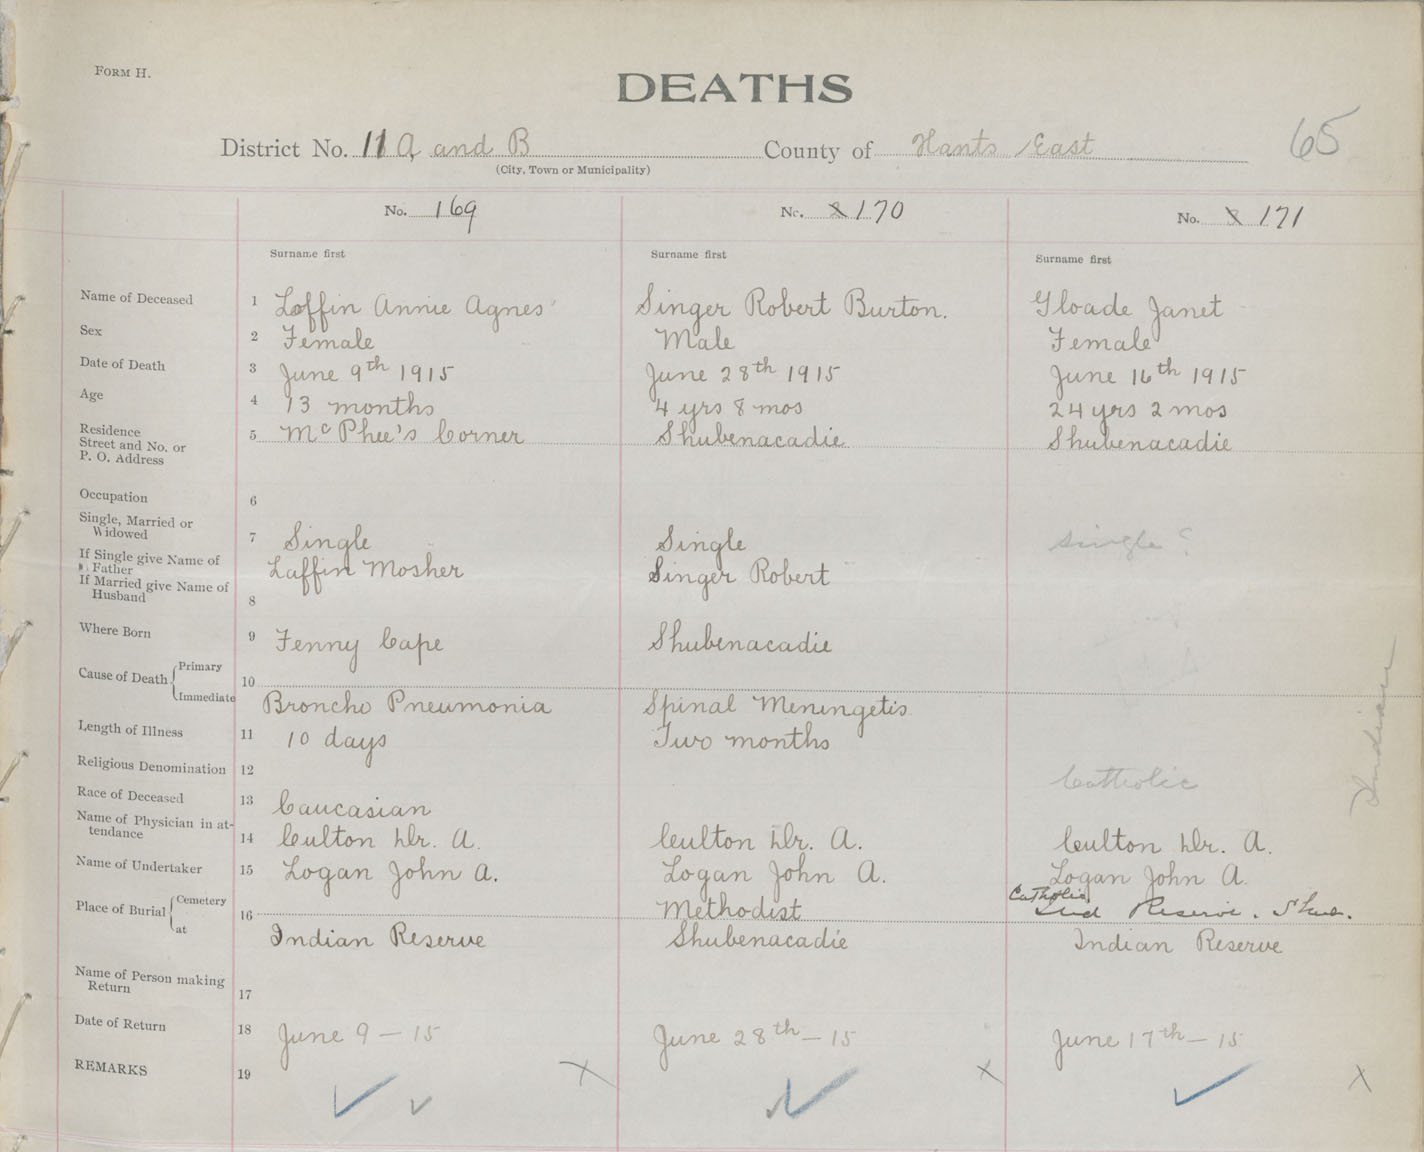 FORM H.
DEATHS
District No. 11 A and B County of Hants East 65
(City, Town or Municipality)
No. 169 No. 170 No. 171
Surname first Surname first Surname first
Name of Deceased 1 Laffin Annie Agnes Singer Robert Burton. Gloade Janet
Sex 2 Female Male Female
Date of Death 3 June 9th 1915 June 28th 1915 June 16th 1915
Age 4 13 months 4 yrs 8 mos 24 yrs 2 mos
Residence
Street and No. or 5 McPhee's Corner Shubenacadie Shubenacadie
P. O. Address
Occupation 6
Single, Married or
Widowed 7 Single Single Single?
If Single give Name of
Father Laffin Mosher Singer Robert
If Married give Name of
Husband 8
Where Born 9 Fenny Cape Shubenacadie
Cause of Death Primary 10
Immediate Broncho Pneumonia Spinal Meningetis
Length of Illness 11 10 days Two months
Religious Denomination 12 Catholic
Race of Deceased 13 Caucasian Indian
Name of Physician in at-
tendance 14 Culton Dr. A. Culton Dr. A. Culton Dr. A.
Name of Undertaker 15 Logan John A. Logan John A. Logan John A.
Place of Burial Cemetery 16 Methodist Catholic Ind Reserve. Shub.
at Indian Reserve Shubenacadie Indian Reserve
Name of Person making
Return 17
Date of Return 18 June 9-15 June 28th-15 June 17th-15
REMARKS 19 X X X